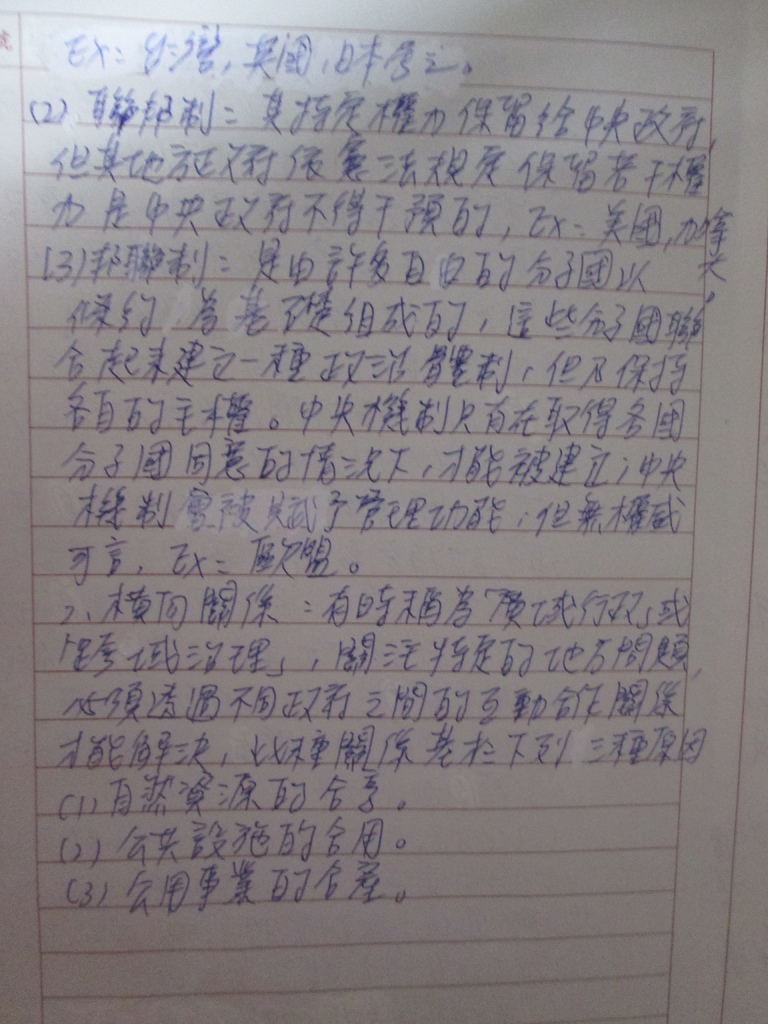 Ex=台灣,英國,日本屬之。
(2)聯邦制=其特定權力保留給中央政府,
但其地方政府依憲法規定保留若干權
力是中央政府不得干預的,Ex=美國,加拿大,
(3)邦聯制=是由許多自由的分子國以
條約為基礎組成的,這些分子國聯
合起來建立一種政治體制,但仍保持
各自的主權。中央機制只有在取得各國
分子國同意的情況下,才能被建立;中央
機制會被賦予管理功能;但無權威
可言,Ex=歐盟。
2、橫向關係:有時稱為「廣域行政」或
「跨域治理」,關注特定的地方問題,
必須透過不同政府之間的互動合作關係
才能解決,此種關係基於下列三種原因
(1)自然資源的合享。
(2)公共設施的合用。
(3)公用事業的合產。